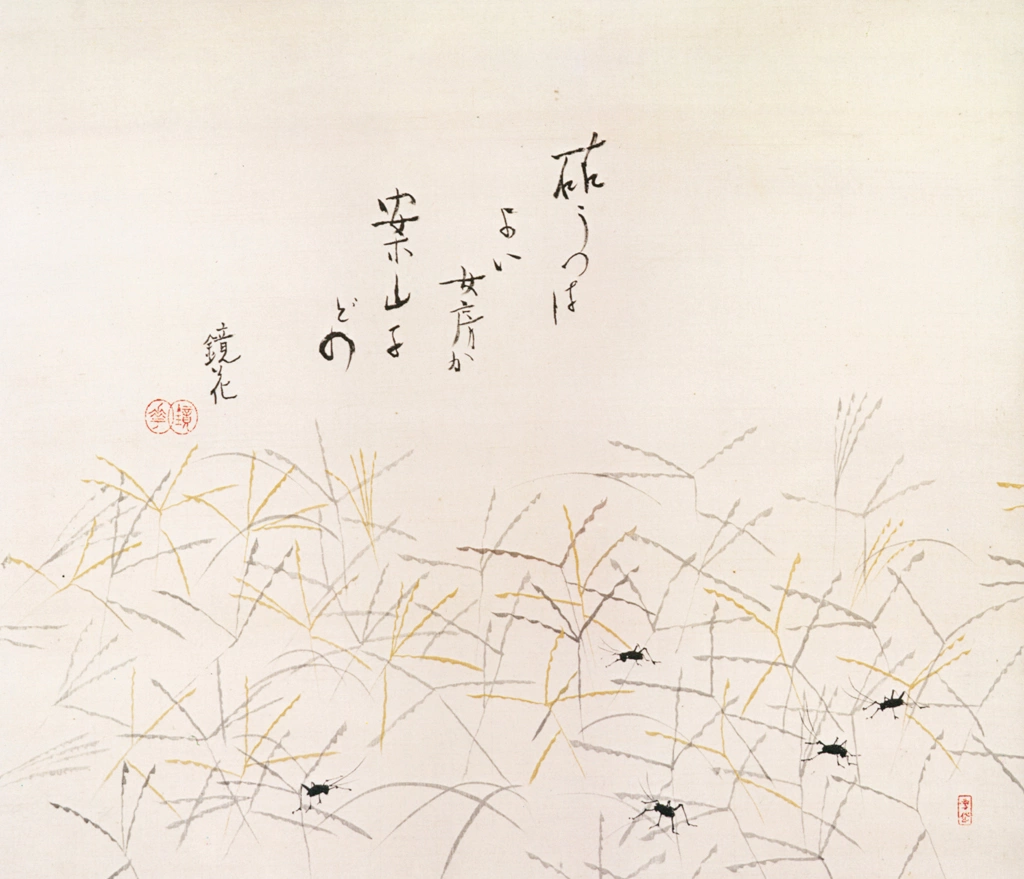 砧うつは
よい
女房か
案山子
どの
鏡花
鏡
花